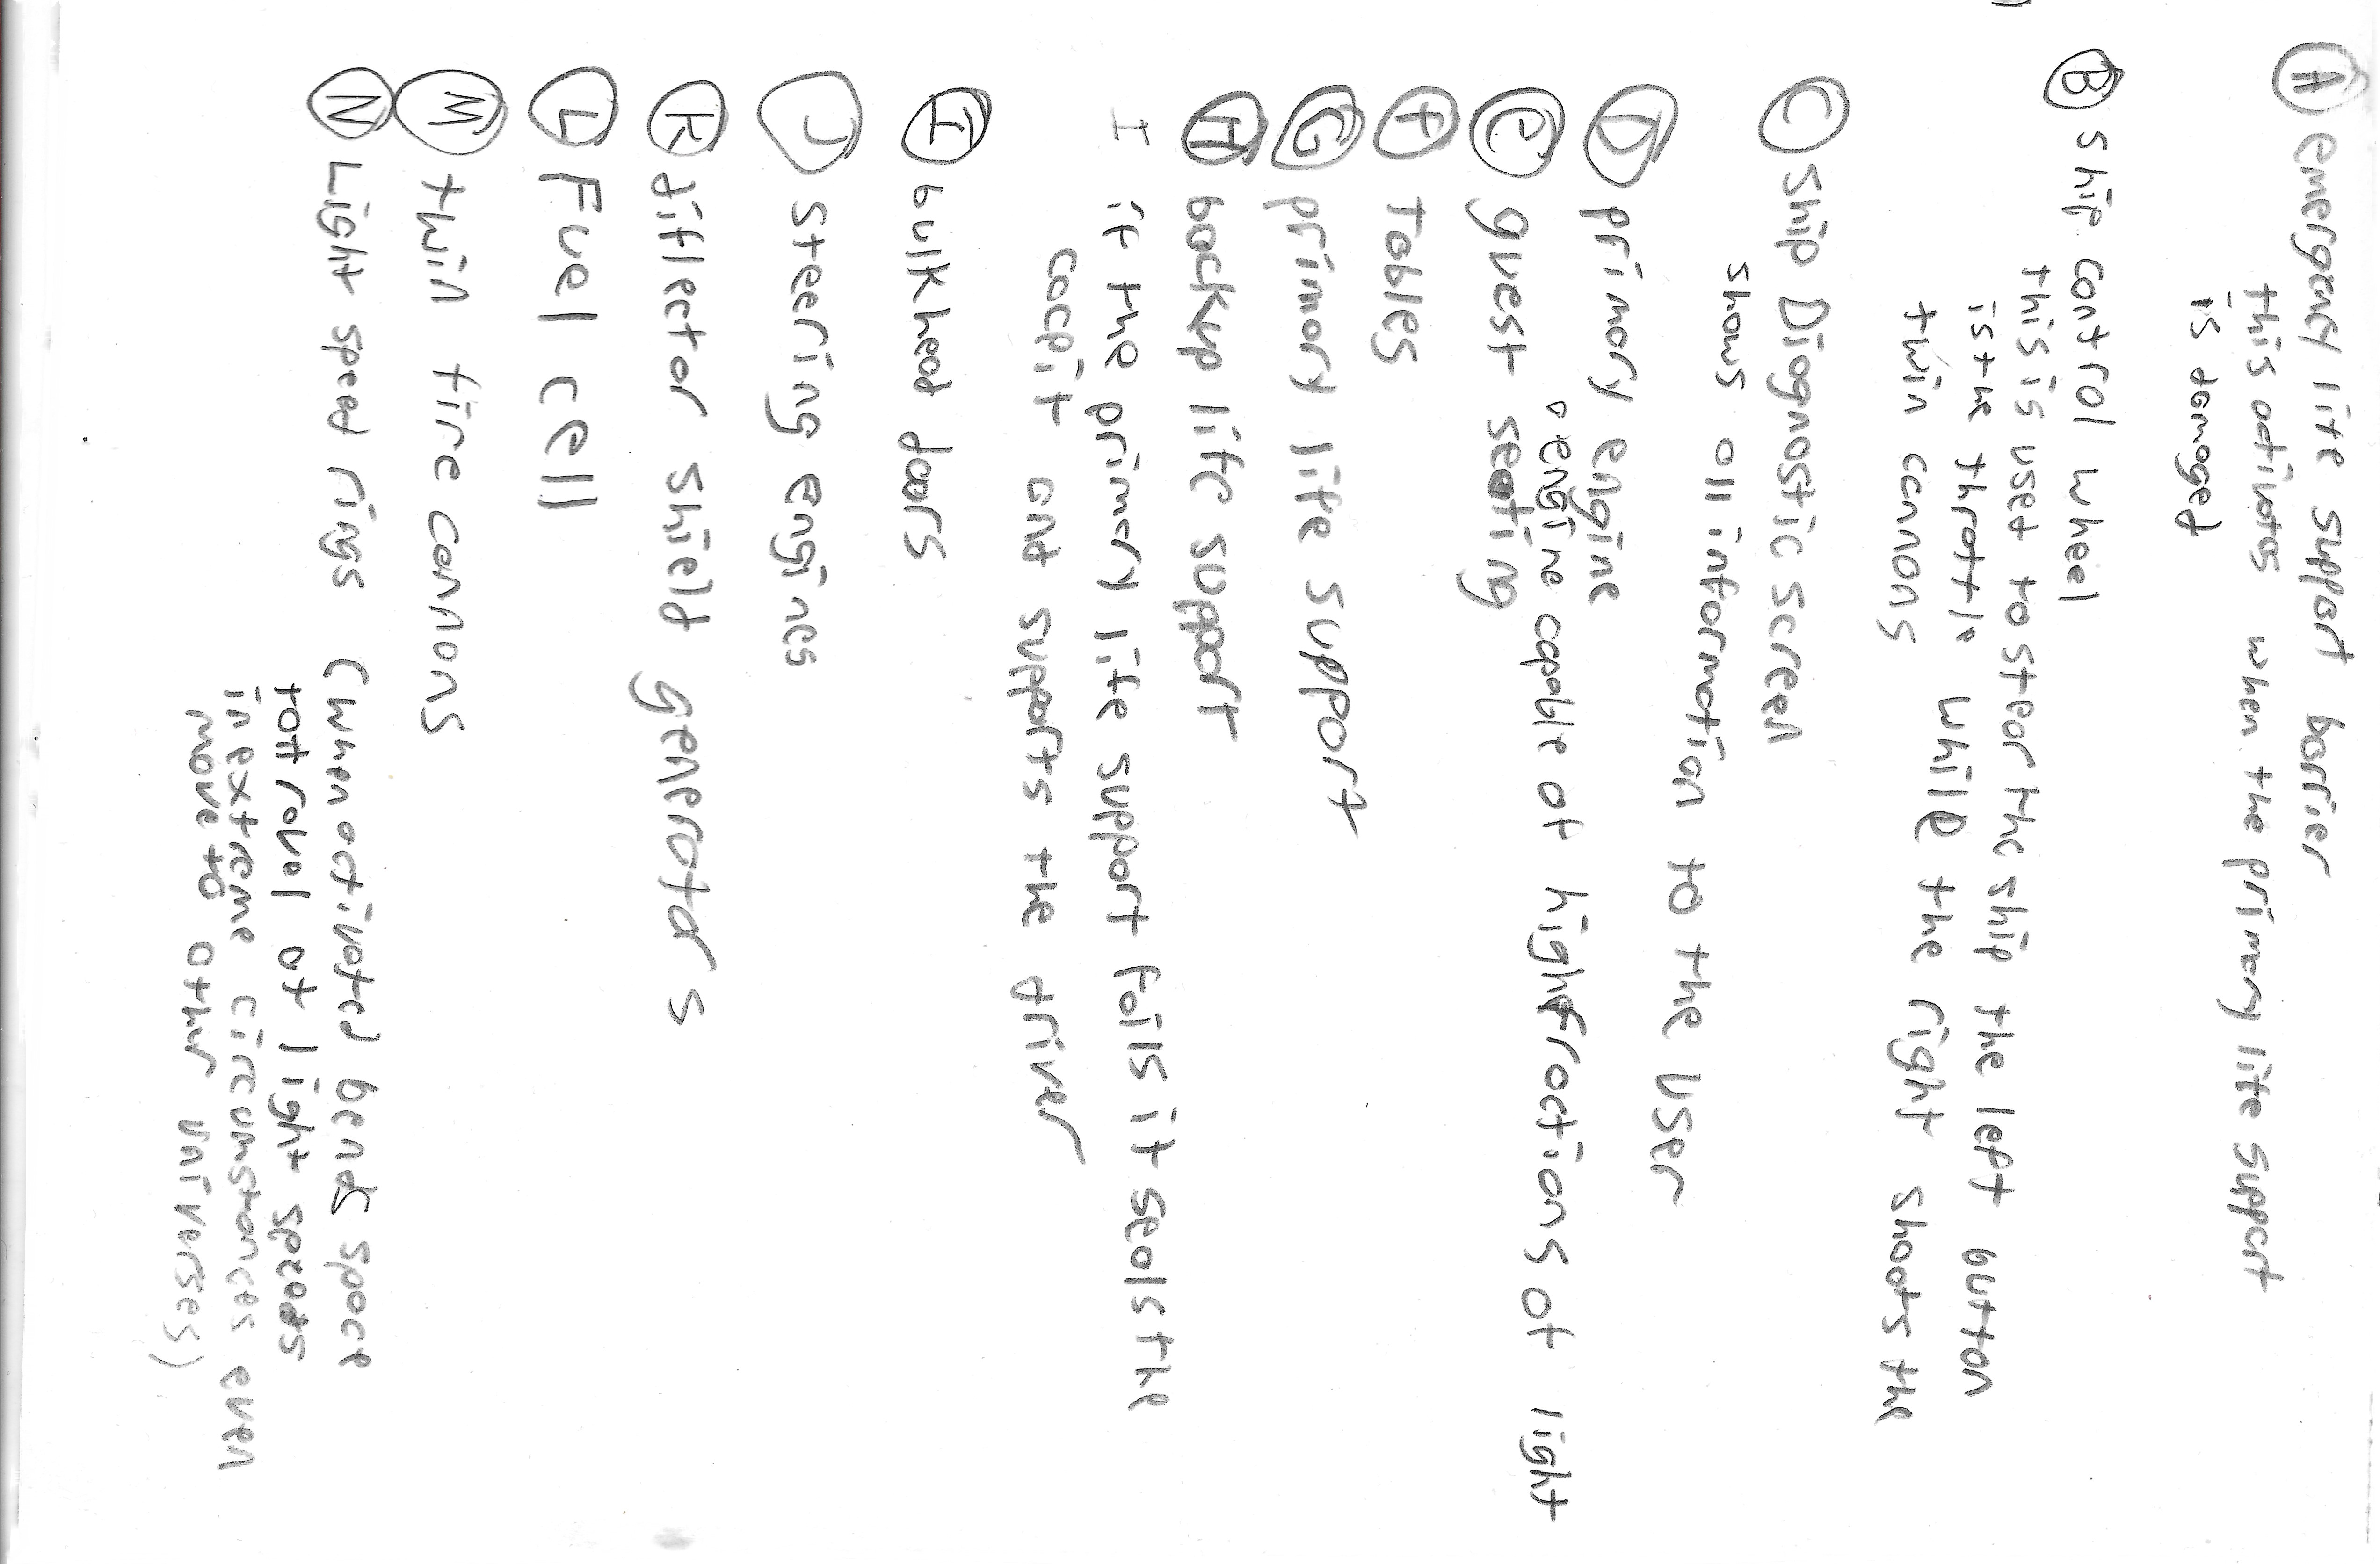 A emergency life support barrier
this activates when the primary life support
is damaged
B Ship control wheel
this is used to stear the ship the left button
is the throttle while the right shoots the
twin cannons
C Ship Diagnostic screen
shows all information to the user
D primary engine
engine capable of high fractions of light
e guest seating
f Tables
G primary life support
H backup life support
I if the primary life support fails it seals the
cocpit and supports the driver
I bulkhead doors
J Steering engines
K diflector shield generators
L Fuel cell
M twin fire cannons
N Light speed rings (when activated bends space
to travel at light speeds
in extreme circumstances even
move to other universes)